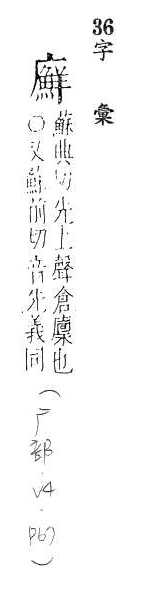 36字 彙
廯
蘇典切先上聲倉廩也
○又蘇前切音先義同
(广部.V4.P67)